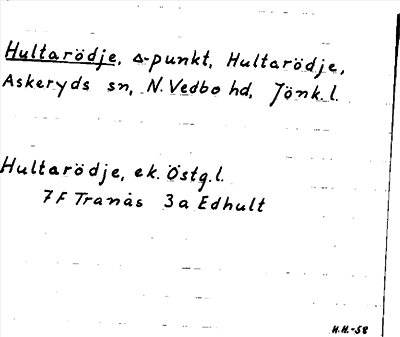 Hultarödje, ▵-punkt, Hultarödje,
Askeryds sn, N. Vedbo hd, Jönk. l.
Hultarödje, ek. Östg. l.
7F Tranås 3a Edhult
H.H.-58